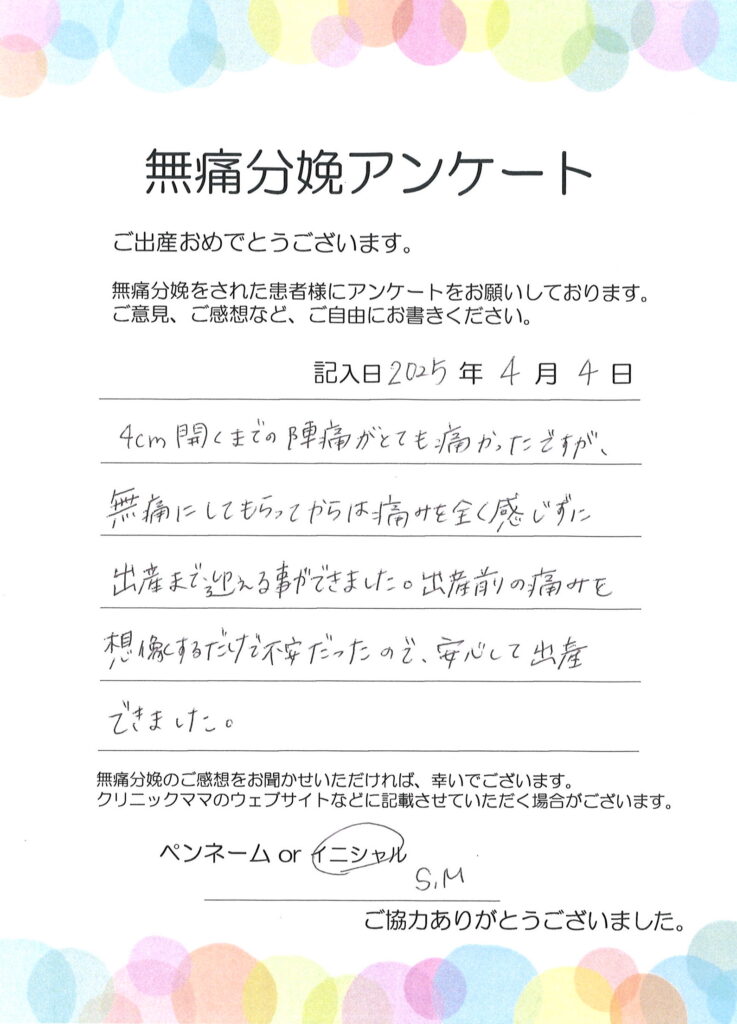 無痛分娩アンケート
ご出産おめでとうございます。
無痛分娩をされた患者様にアンケートをお願いしております。
ご意見、ご感想など、ご自由にお書きください。
記入日 2025 年 4 月 4 日
4cm開くまでの陣痛がとても痛かったですが、
無痛にしてもらってからは痛みを全く感じずに
出産まで迎える事ができました。出産前の痛みを
想像するだけで不安だったので、安心して出産
できました。
無痛分娩のご感想をお聞かせいただければ、幸いでございます。
クリニックママのウェブサイトなどに記載させていただく場合がございます。
ペンネーム or イニシャル
S,M
ご協力ありがとうございました。